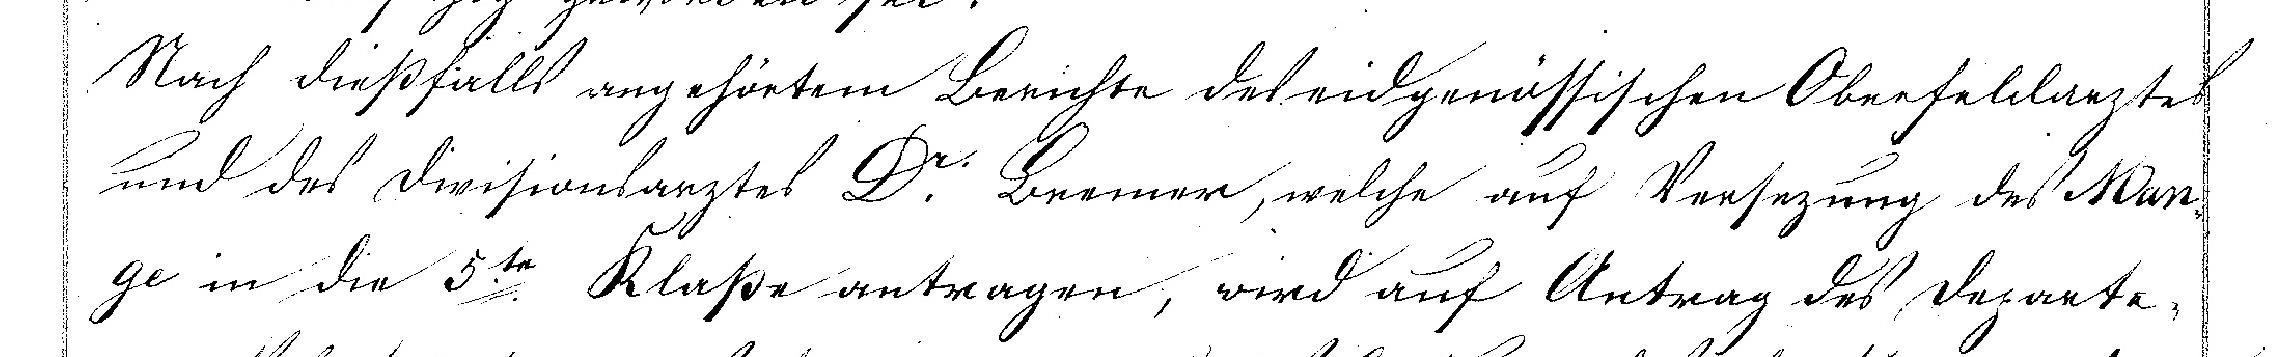 geworden sei.
Nach dießfalls angehörtem Berichte des eidgenössischen Oberfeldarztes
und des Divisionsarztes Dr. Bremer, welche auf Versezung des Man-
ge in die 5te Klaße antragen, wird auf Antrag des Departe-